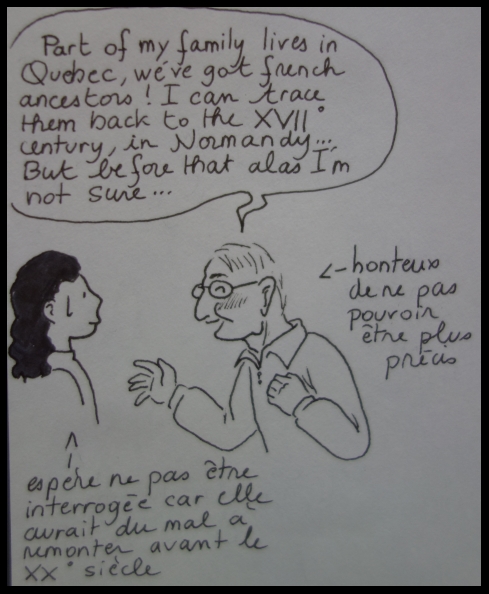 Part of my family lives in
Quebec, we've got french
ancestors! I can trace
them back to the XVII°
century, in Normandy...
But before that alas I'm
not sure...
<- honteux
de ne pas
pouvoir
être plus
précis
espère ne pas être
interrogée car elle
aurait du mal à
remonter avant le
XX° siècle